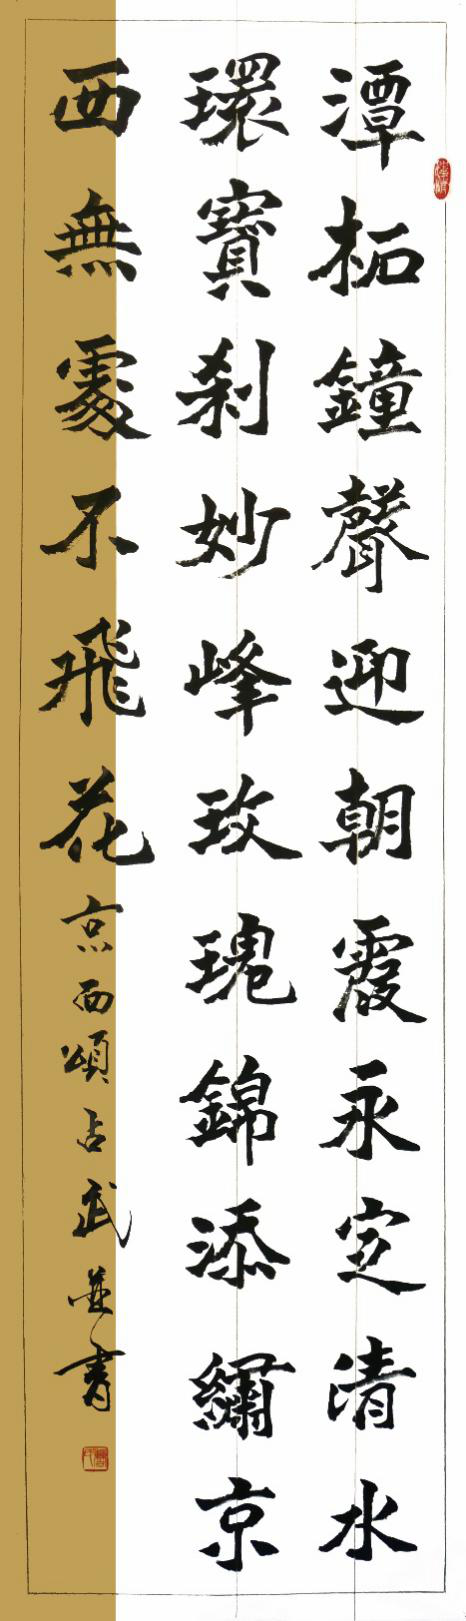 潭柘鐘聲迎朝霞永定清水
環寶刹妙峰玫瑰錦添繡京
西無處不飛花
京西頌占武並書